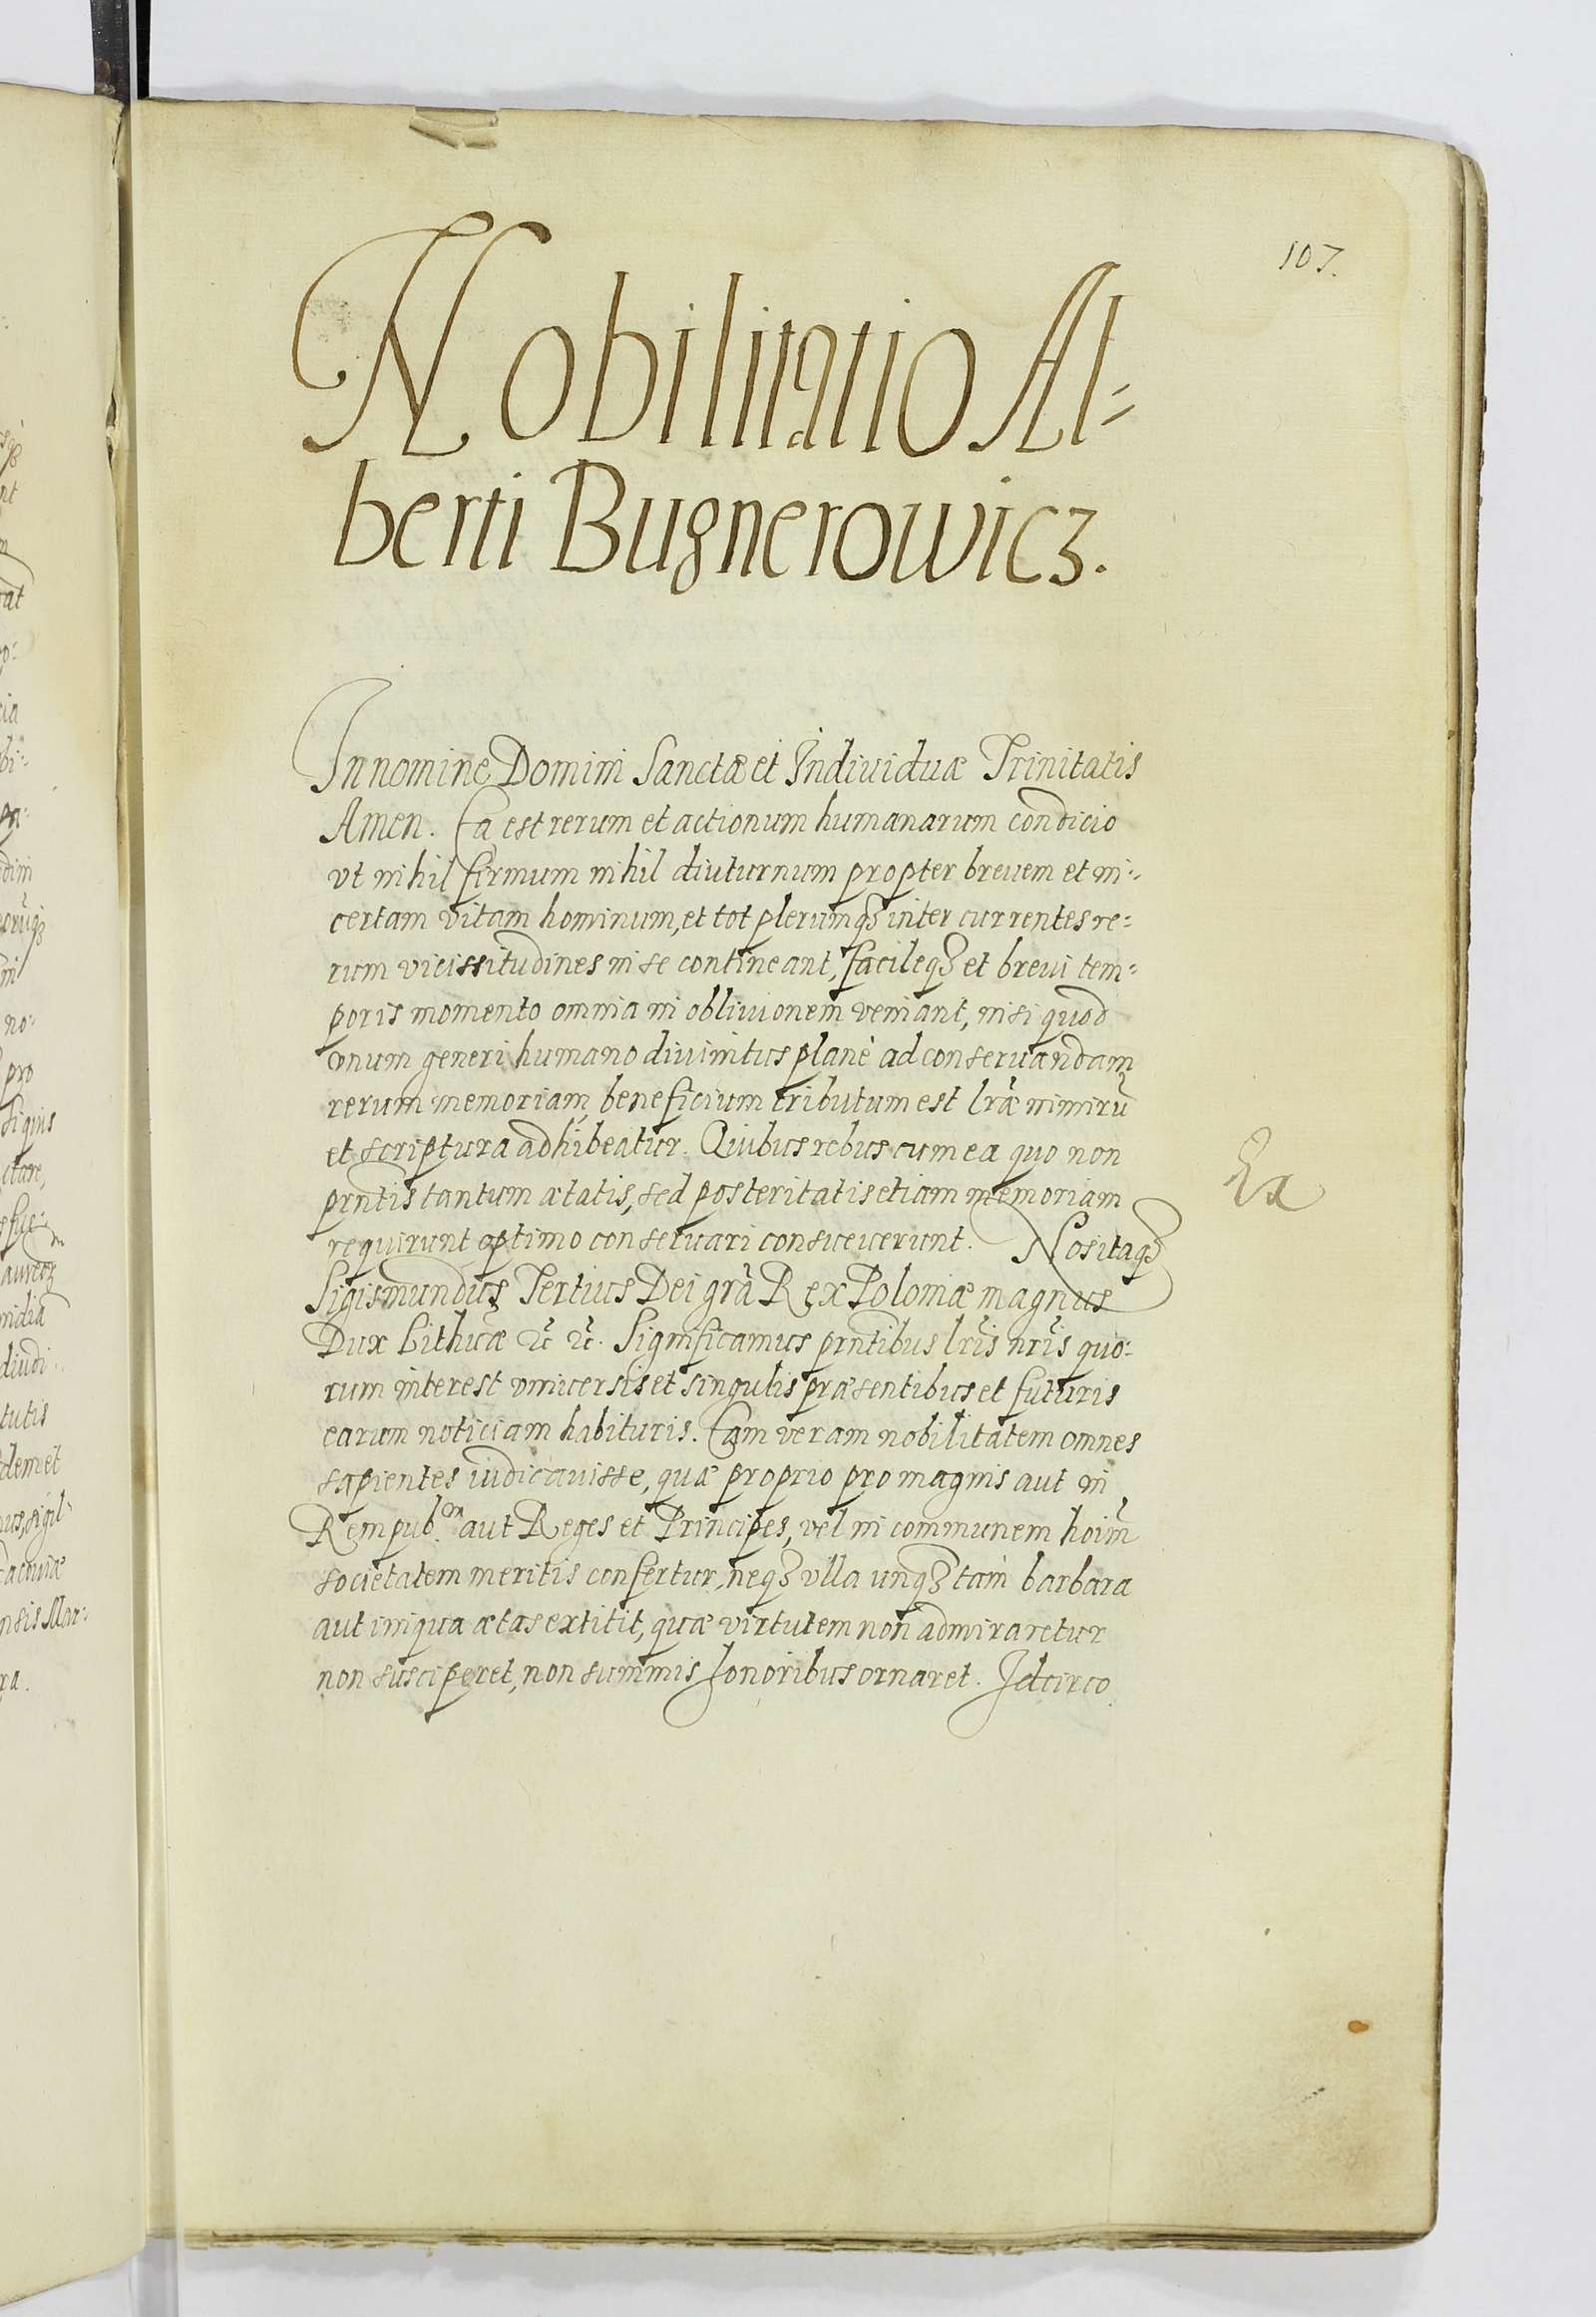 107.
Nobilitatio Al=
berti Bugnerowicz.
In nomine Domini Sanctæ et Individuæ Trinitatis
Amen. Ea est rerum et actionum humanarum condicio
vt nihil firmum nihil diuturnum propter breuem et in=
certam vitam hominum, et tot plerumqꝫ inter currentes re=
rum vicissitudines in se contineant, facileqꝫ et brevi tem=
poris momento omnia in obliuionem veniant, nisi quod
vnum generi humano diuinitus planè ad conseruandam
rerum memoriam beneficium tributum est lr̃æ nimirũ
et scriptura adhibeatur. Quibus rebus cum ea quo non
prñtis tantum ætatis, sed posteritatis etiam memoriam
requirunt optimo conseruari consueuerunt. Nos itaqꝫ
Sigismundus Tertius Dei grã Rex Poloniæ magnus
Dux Lithuæ ꝛc̃ ꝛc̃. Significamus prñtibus lr̃is nr̃is quo=
rum interest vniuersis et singulis præsentibus et futuris
earum noticiam habituris. Eam veram nobilitatem omnes
sapientes iudicauisse, quæ proprio pro magnis aut in
Rempub. aut Reges et Principes, vel in communem hoim̃
societatem meritis confertur, neqꝫ vlla unqꝫ tam barbara
aut iniqua ætas extitit, quæ virtutem non admiraretur
non susciperet, non summis honoribus ornaret. Idcirco